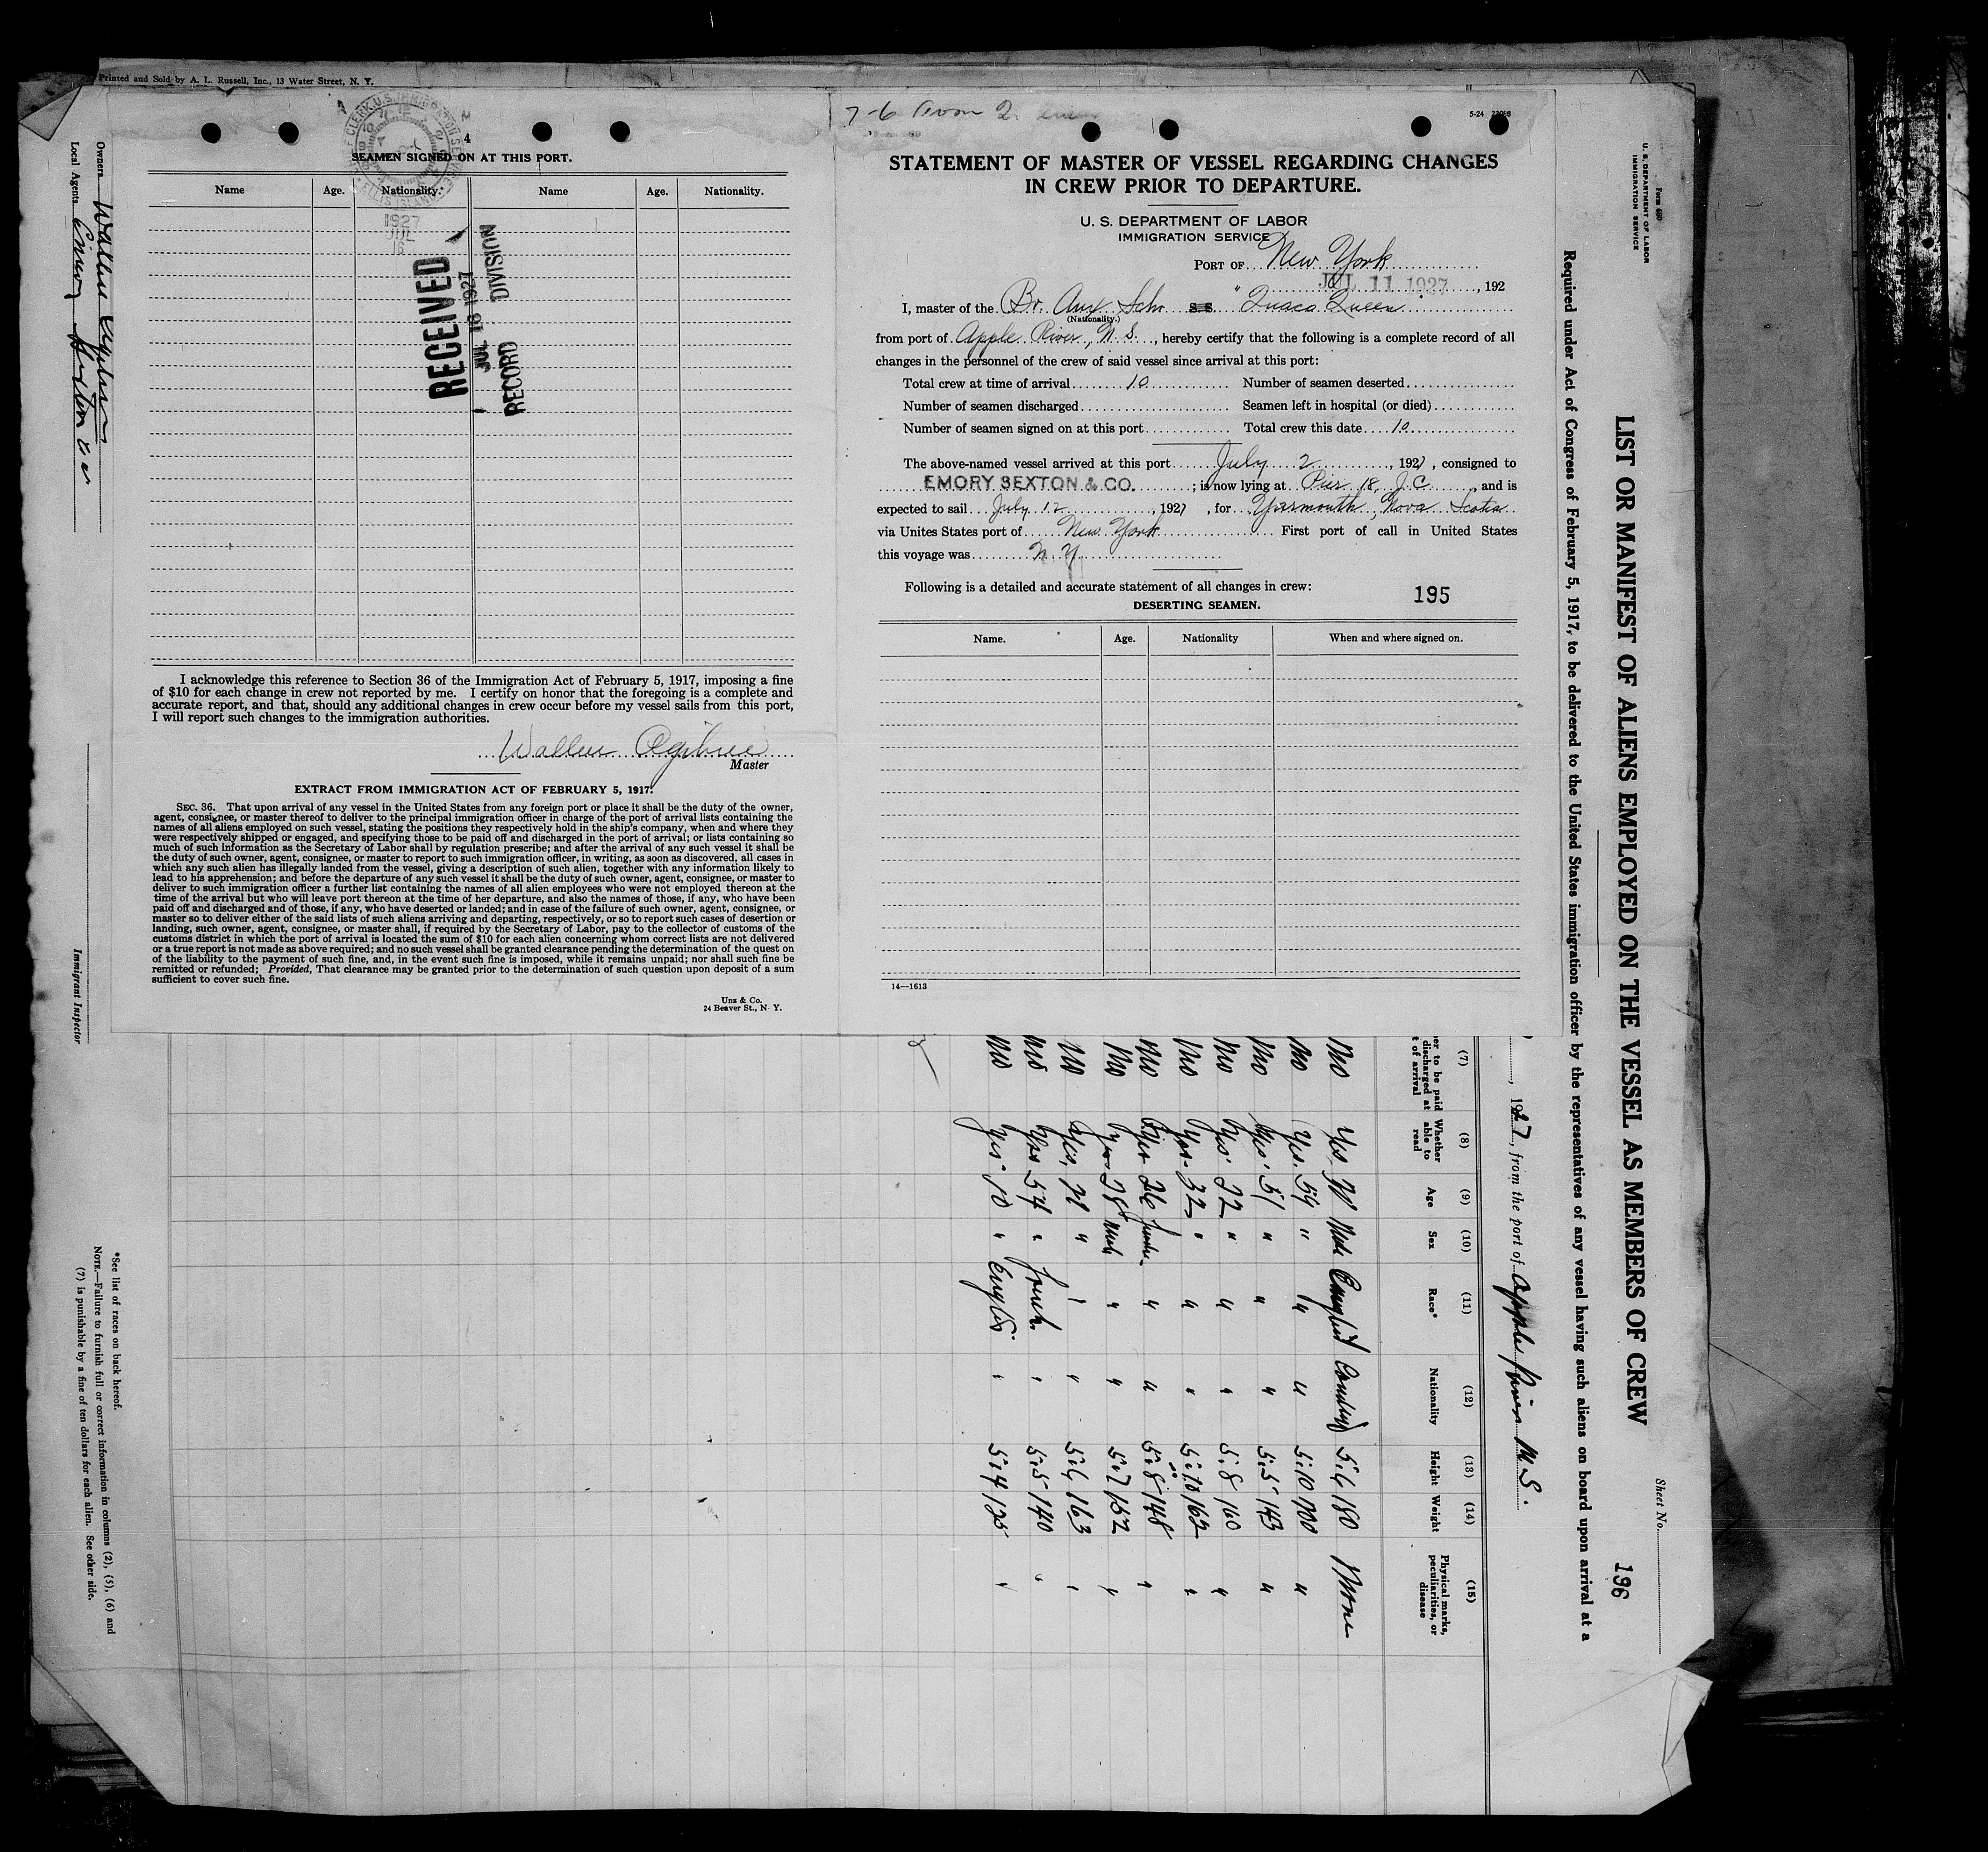 Printed and Sold by A. L. Russell, Inc., 13 Water Street, N. Y.
4
SEAMEN SIGNED ON AT THIS PORT.
Name Age. Nationality. Name Age. Nationality.
CLERK, U.S. IMMIGRATION SERVICE
ELLIS ISLAND
1927
JUL
16
RECEIVED
JUL 16 1927
RECORD DIVISION
I acknowledge this reference to Section 36 of the Immigration Act of February 5, 1917, imposing a fine
of $10 for each change in crew not reported by me. I certify on honor that the foregoing is a complete and
accurate report, and that, should any additional changes in crew occur before my vessel sails from this port,
I will report such changes to the immigration authorities.
Ogilvie
Master
EXTRACT FROM IMMIGRATION ACT OF FEBRUARY 5, 1917.
SEC. 36. That upon arrival of any vessel in the United States from any foreign port or place it shall be the duty of the owner,
agent, consignee, or master thereof to deliver to the principal immigration officer in charge of the port of arrival lists containing the
names of all aliens employed on such vessel, stating the positions they respectively hold in the ship's company, when and where they
were respectively shipped or engaged, and specifying those to be paid off and discharged in the port of arrival; or lists containing so
much of such information as the Secretary of Labor shall by regulation prescribe; and after the arrival of any such vessel it shall be
the duty of such owner, agent, consignee, or master to report to such immigration officer, in writing, as soon as discovered, all cases in
which any such alien has illegally landed from the vessel, giving a description of such alien, together with any information likely to
lead to his apprehension; and before the departure of any such vessel it shall be the duty of such owner, agent, consignee, or master to
deliver to such immigration officer a further list containing the names of all alien employees who were not employed thereon at the
time of the arrival but who will leave port thereon at the time of her departure, and also the names of those, if any, who have been
paid off and discharged and of those, if any, who have deserted or landed; and in case of the failure of such owner, agent, consignee, or
master so to deliver either of the said lists of such aliens arriving and departing, respectively, or so to report such cases of desertion or
landing, such owner, agent, consignee, or master shall, if required by the Secretary of Labor, pay to the collector of customs of the
customs district in which the port of arrival is located the sum of $10 for each alien concerning whom correct lists are not delivered
or a true report is not made as above required; and no such vessel shall be granted clearance pending the determination of the quest on
of the liability to the payment of such fine, and, in the event such fine is imposed, while it remains unpaid; nor shall such fine be
remitted or refunded; Provided, That clearance may be granted prior to the determination of such question upon deposit of a sum
sufficient to cover such fine.
Unz & Co.
24 Beaver St., N. Y.
7-6 from 2
5-24
STATEMENT OF MASTER OF VESSEL REGARDING CHANGES
IN CREW PRIOR TO DEPARTURE.
U. S. DEPARTMENT OF LABOR
IMMIGRATION SERVICE
PORT OF New York
JUL 11 1927, 192
I, master of the Br. Aux Schr S.S. "Quaco Queen"
(Nationality.)
from port of Apple River, N. S., hereby certify that the following is a complete record of all
changes in the personnel of the crew of said vessel since arrival at this port:
Total crew at time of arrival 10 Number of seamen deserted
Number of seamen discharged Seamen left in hospital (or died)
Number of seamen signed on at this port Total crew this date 10
The above-named vessel arrived at this port July 2, 1927, consigned to
EMORY SEXTON & CO.; is now lying at Pier 18, J.C., and is
expected to sail July 12, 1927, for Yarmouth, Nova Scotia
via Unites States port of New York First port of call in United States
this voyage was N. Y.
Following is a detailed and accurate statement of all changes in crew: 195
DESERTING SEAMEN.
Name. Age. Nationality When and where signed on.
14—1613
Form 680
U. S. DEPARTMENT OF LABOR
IMMIGRATION SERVICE
Sheet No.
196
LIST OR MANIFEST OF ALIENS EMPLOYED ON THE VESSEL AS MEMBERS OF CREW
Required under Act of Congress of February 5, 1917, to be delivered to the United States immigration officer by the representatives of any vessel having such aliens on board upon arrival at a
, 1927, from the port of Apple River N.S.
(7) (8) (9) (10) (11) (12) (13) (14) (15)
er to be paid
discharged at
t of arrival
Whether
able to
read
Age
Sex
Race*
Nationality
Height
Weight
Physical marks,
peculiarities, or
disease
no yes Male English 5.6 180 None
no yes 59 " " " 5.10 "
no yes 51 " " " 5.5 143 "
no yes 22 " " " 5.8 160 "
no yes 32 " " " 5.10 162 "
no yes 26 " " 5.8 148 "
no yes 28 Male " " 5.7 152 "
no yes " " " 5.6 163 "
no yes 54 " French " 5.5 140 "
no yes " English " 5.4 125 "
Owners Ogilvie
Local Agents Emory Sexton & Co
Immigrant Inspector
*See list of races on back hereof.
NOTE.—Failure to furnish full or correct information in columns (2), (5), (6) and
(7) is punishable by a fine of ten dollars for each alien. See other side.